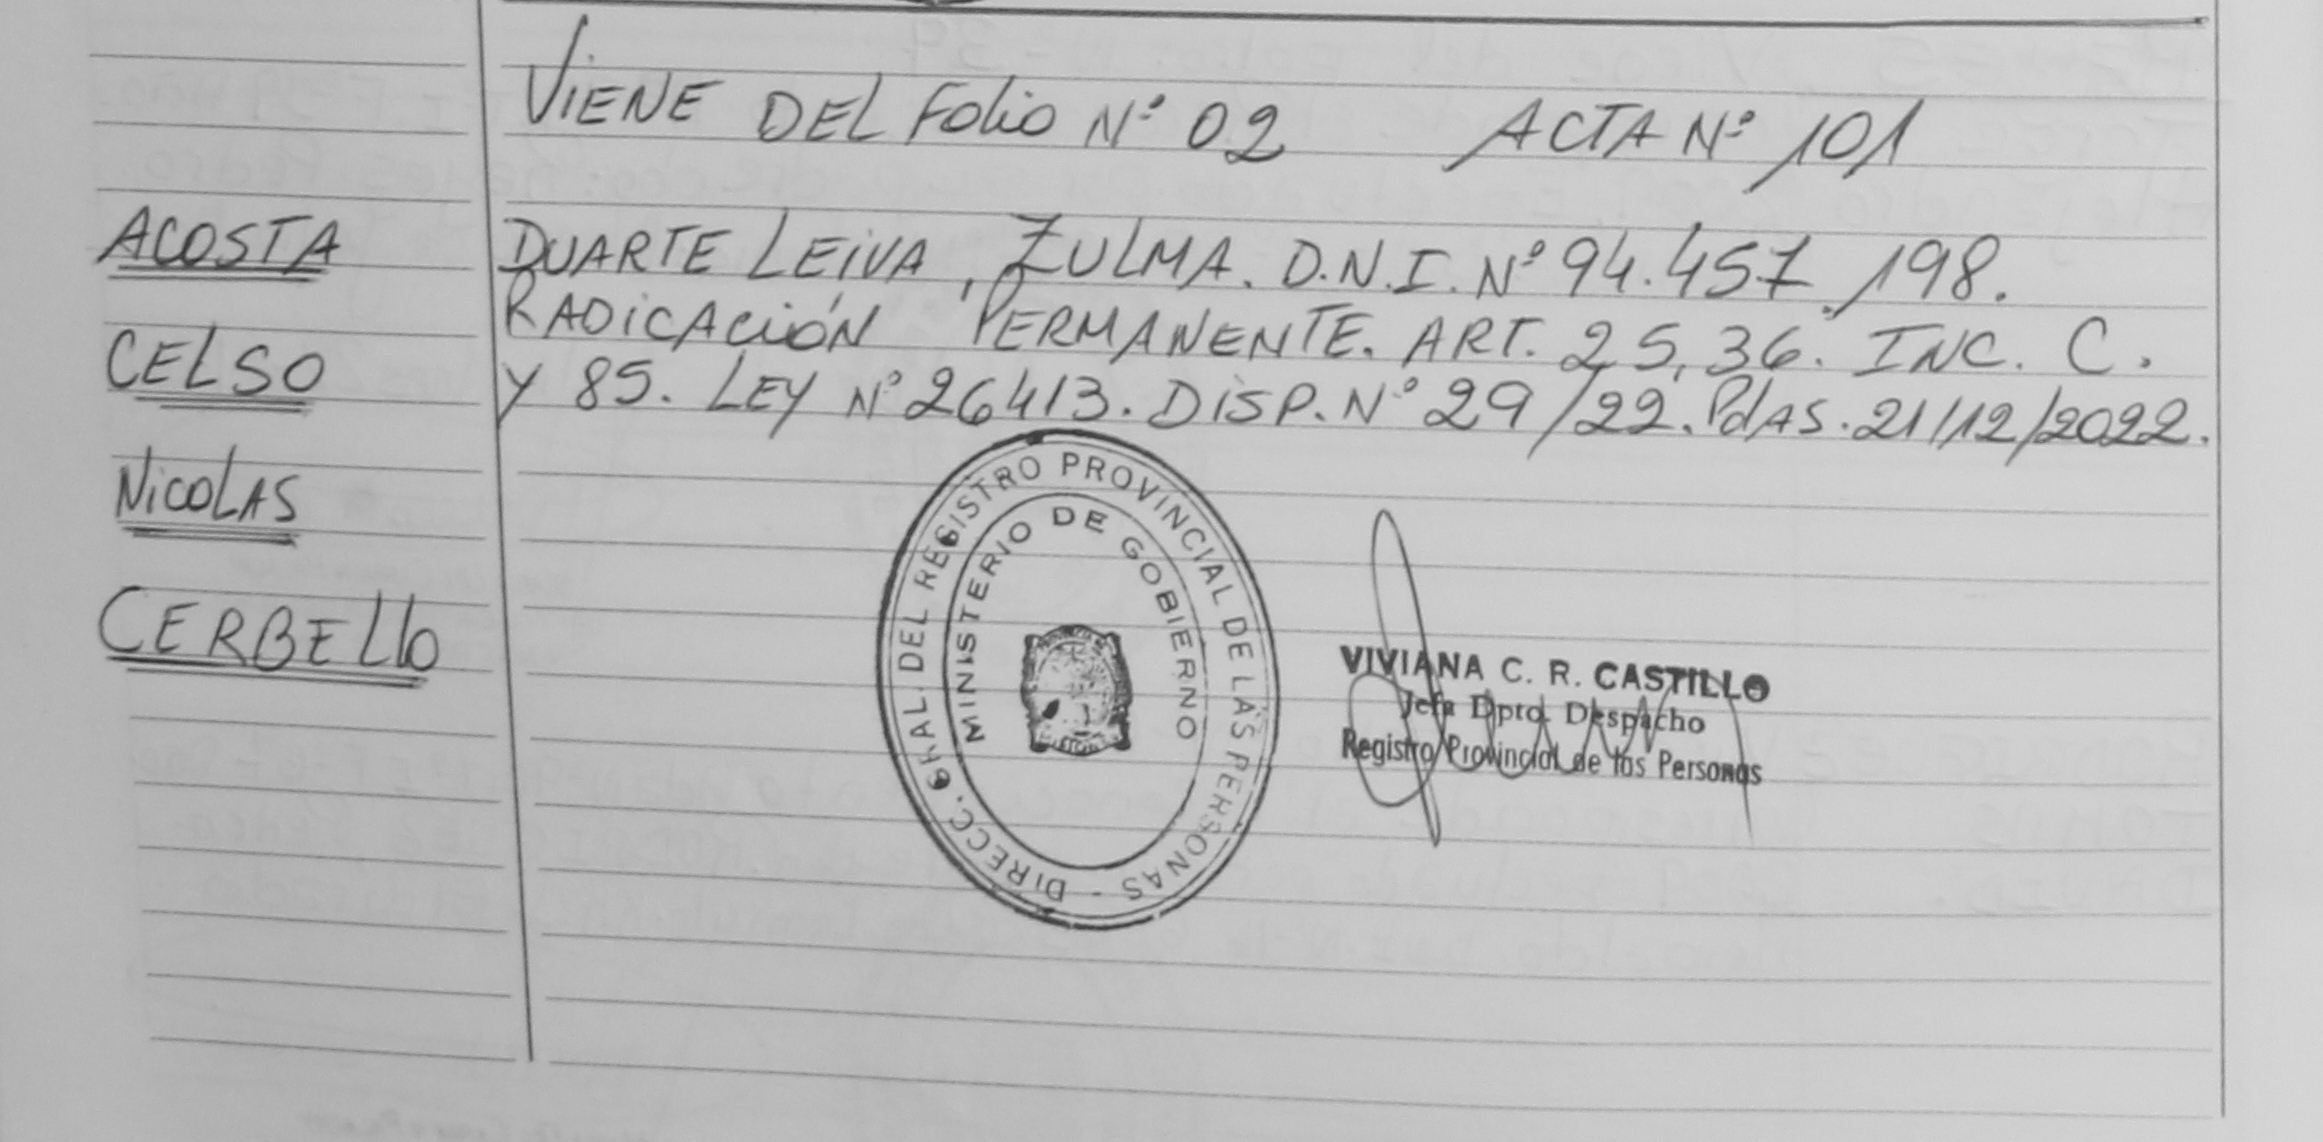 VIENE DEL FOLIO Nº 02 ACTA Nº 101
ACOSTA
CELSO
NICOLAS
CERBELLO
DUARTE LEIVA, ZULMA. D.N.I. Nº 94.457.198.
RADICACIÓN PERMANENTE. ART. 25, 36. INC. C.
Y 85. LEY Nº 26413. DISP. Nº 29/22. PdAS. 21/12/2022.
DIRECC. GRAL. DEL REGISTRO PROVINCIAL DE LAS PERSONAS -
MINISTERIO DE GOBIERNO
VIVIANA C. R. CASTILLO
Jefa Dpto. Despacho
Registro Provincial de las Personas